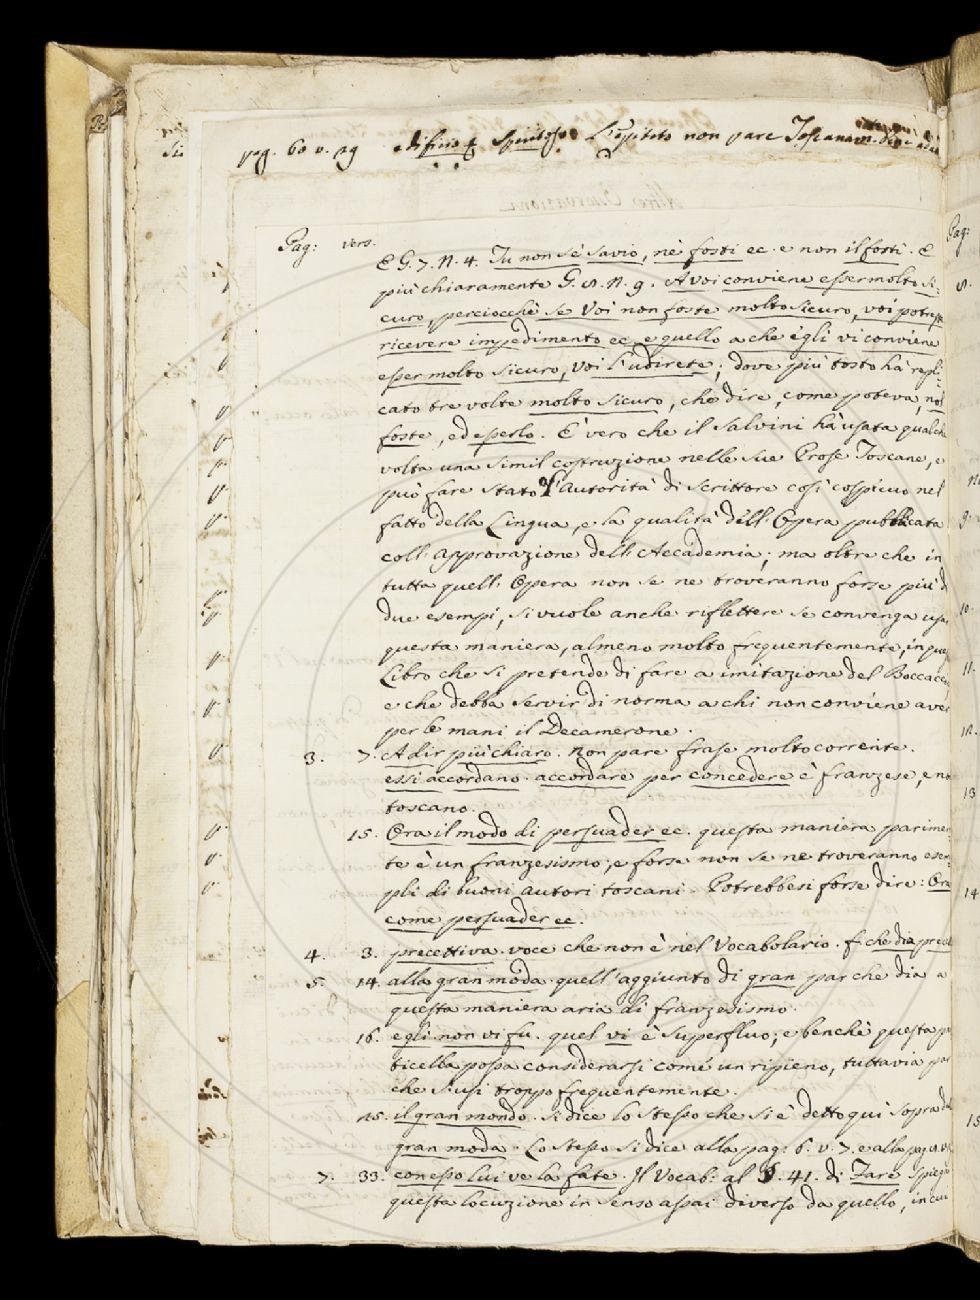 pag. 60 v. 29 edifizio spiritoso L'epiteto non pare Toscanam.
Pag: vers.
E G. 7. N. 4. Tu non sè savio, nè fosti ec. e non il fosti. E
più chiaramente G. 8. N. 9. A voi conviene esser molto si:
curo, perciocchè se Voi non foste molto sicuro, voi potreste
ricevere impedimento ec. e quello a che egli vi conviene
esser molto sicuro, Voi l'udirete; dove più tosto hà repli:
cato tre volte molto sicuro, che dire, come poteva, nol
foste, ed esserlo. E' vero che il Salvini hà usata qualche
volta una simil costruzione nelle sue Prose Toscane, e
può fare stato l'autorità di Scrittore così cospicuo nel
fatto della Lingua, e la qualità dell'Opera pubblicata
coll'approvazione dell'Accademia; ma oltre che in
tutta quell'Opera non se ne troveranno forse più di
due esempi, si vuole anche riflettere se convenga usar
questa maniera, almeno molto frequentemente, in questo
Libro che si pretende di fare a imitazione del Boccaccio
e che debba servir di norma a chi non conviene aver
per le mani il Decamerone.
3. 7. A dir più chiaro. non pare frase molto corrente.
essi accordano. accordare per concedere è franzese, e non
toscano.
15. Ora il modo di persuader ec. questa maniera parimen:
te è un franzesismo; e forse non se ne troveranno esem:
pli di buoni autori toscani. Potrebbesi forse dire: Ora
come persuader ec.
4. 3. precettiva. voce che non è nel Vocabolario. f. che dia precetti
5. 14. alla gran moda. quell'aggiunto di gran par che dia a
questa maniera aria di franzesismo.
16. egli non vi fu. quel vi è superfluo; e benchè questa par
ticella possa considerarsi come un ripieno, tuttavia par
che s'usi troppo frequentemente.
25. il gran mondo. Si dice lo stesso che si è detto qui sopra da
gran moda. Lo stesso si dice alla pag: 6. v. 7. e alla pag.
7. 33. con esso lui ve la fate. Il Vocab: al §. 41. di Fare spiega
questa locuzione in senso assai diverso da quello, in cui